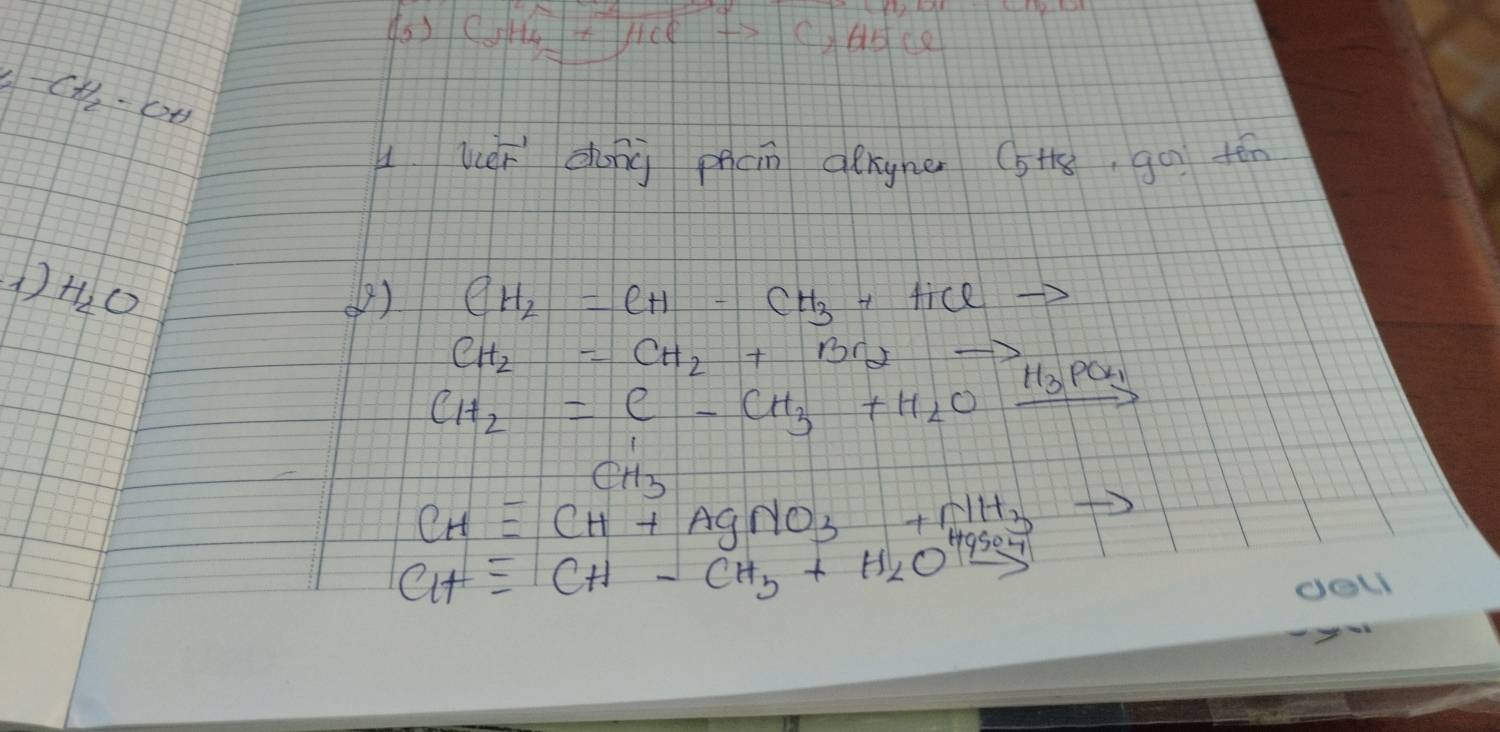 (5) C2H4 + HCl → C2H5Cl
-CH2-CH
1) H2O
1. Viết đồng phân alkyne C5H8, gọi tên
2) CH2 = CH - CH3 + HCl →
CH2 = CH2 + Br2 →
CH2 = C - CH3 + H2O H3PO4 →
CH3
CH ≡ CH + AgNO3 + NH3 →
CH ≡ CH - CH3 + H2O HgSO4 →
deli